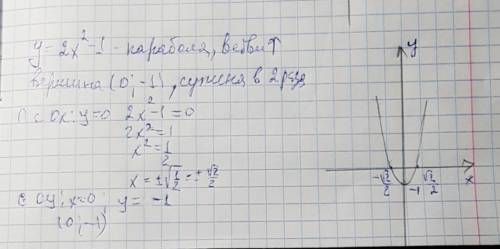 y = 2x² - 1 - парабола, ветви ↑
вершина (0; -1), сужена в 2 раза
∩ с Ox: y=0 2x² - 1 = 0
2x² = 1
x² = 1/2
x = ±√(1/2) = ± √2/2
с Oy: x=0; y = -1
(0; -1)
y
-√2/2
√2/2
-1
x